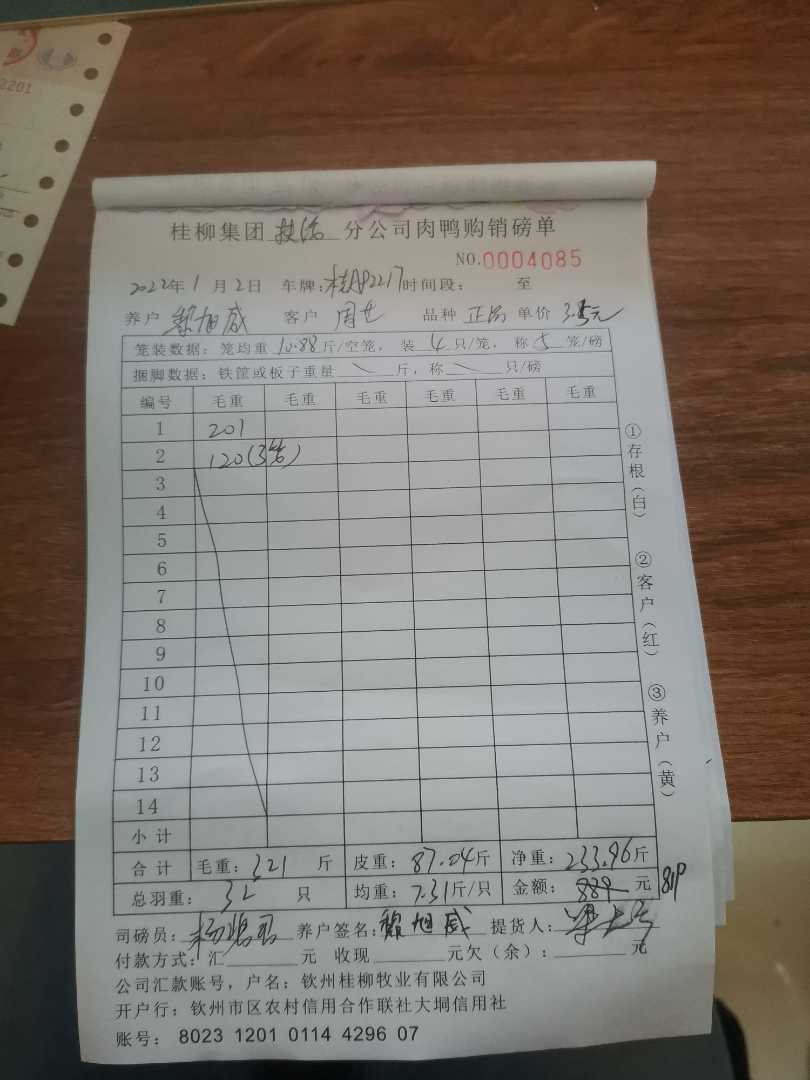 2201
桂柳集团 分公司肉鸭购销磅单
NO.0004085
2022年1月2日 车牌: 2217 时间段: 至
养户 黎旭威 客户 周 品种 正品 单价 3.5元
笼装数据: 笼均重 10.88 斤/空笼, 装 4 只/笼, 称 5 笼/磅
捆脚数据: 铁筐或板子重量 \ 斤, 称 \ 只/磅
编号 毛重 毛重 毛重 毛重 毛重 毛重
1 201
2 120(3笼)
3
4
5
6
7
8
9
10
11
12
13
14
小计
合计 毛重: 321 斤 皮重: 87.04斤 净重: 233.96斤
总羽重: 32 只 均重: 7.31斤/只 金额: 889 元 819
司磅员: 养户签名: 黎旭威 提货人:
付款方式: 汇 元 收现 元欠(余): 元
公司汇款账号, 户名: 钦州桂柳牧业有限公司
开户行: 钦州市区农村信用合作联社大垌信用社
账号: 8023 1201 0114 4296 07
①存根(白)
②客户(红)
③养户(黄)